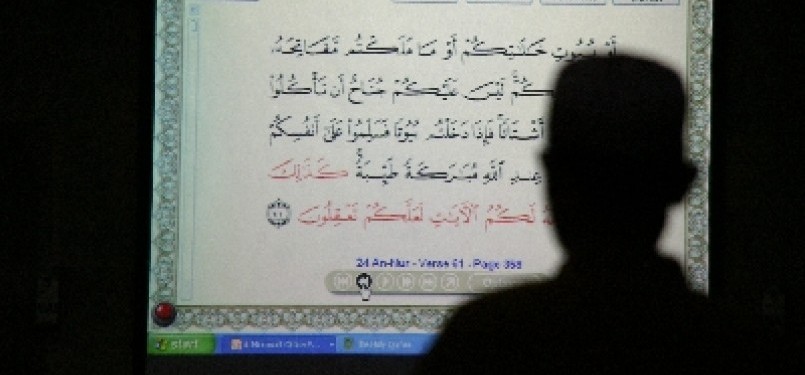 بُيُوتِ خَـٰلَـٰتِكُمْ أَوْ مَا مَلَكْتُم مَّفَاتِحَهُۥٓ
لَيْسَ عَلَيْكُمْ جُنَاحٌ أَن تَأْكُلُوا۟
أَشْتَاتًا فَإِذَا دَخَلْتُم بُيُوتًا فَسَلِّمُوا۟ عَلَىٰٓ أَنفُسِكُمْ
عِندِ ٱللَّهِ مُبَـٰرَكَةً طَيِّبَةً كَذَٰلِكَ
لَكُمُ ٱلْـَٔايَـٰتِ لَعَلَّكُمْ تَعْقِلُونَ ٦١
24 An-Nur - Verse 61 - Page 358
start